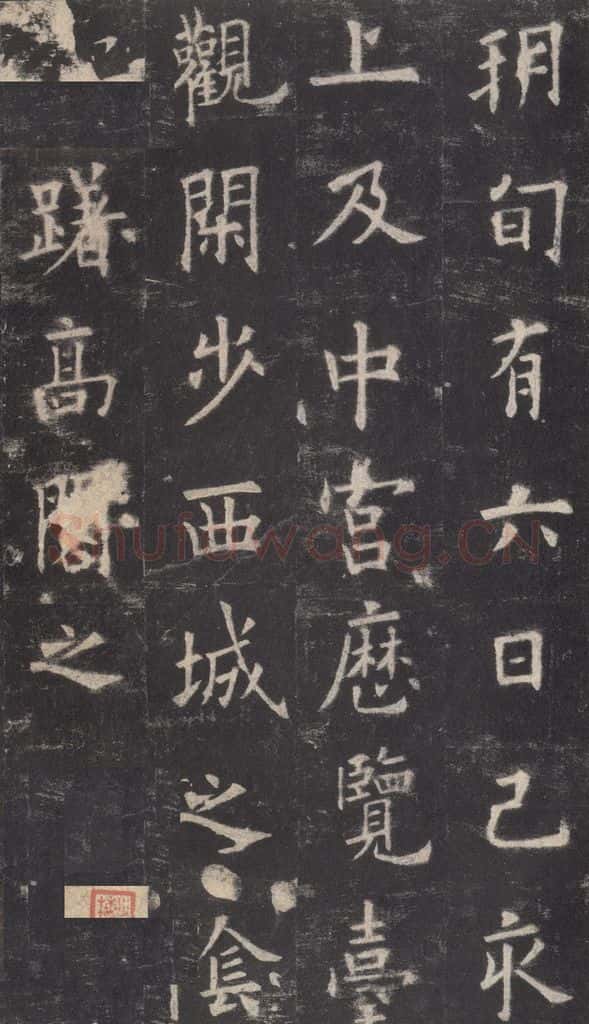 朔旬有六日己亥
上及中宮歷覽臺
觀閑步西城之陰
躇高閣之
Shufawang.CN